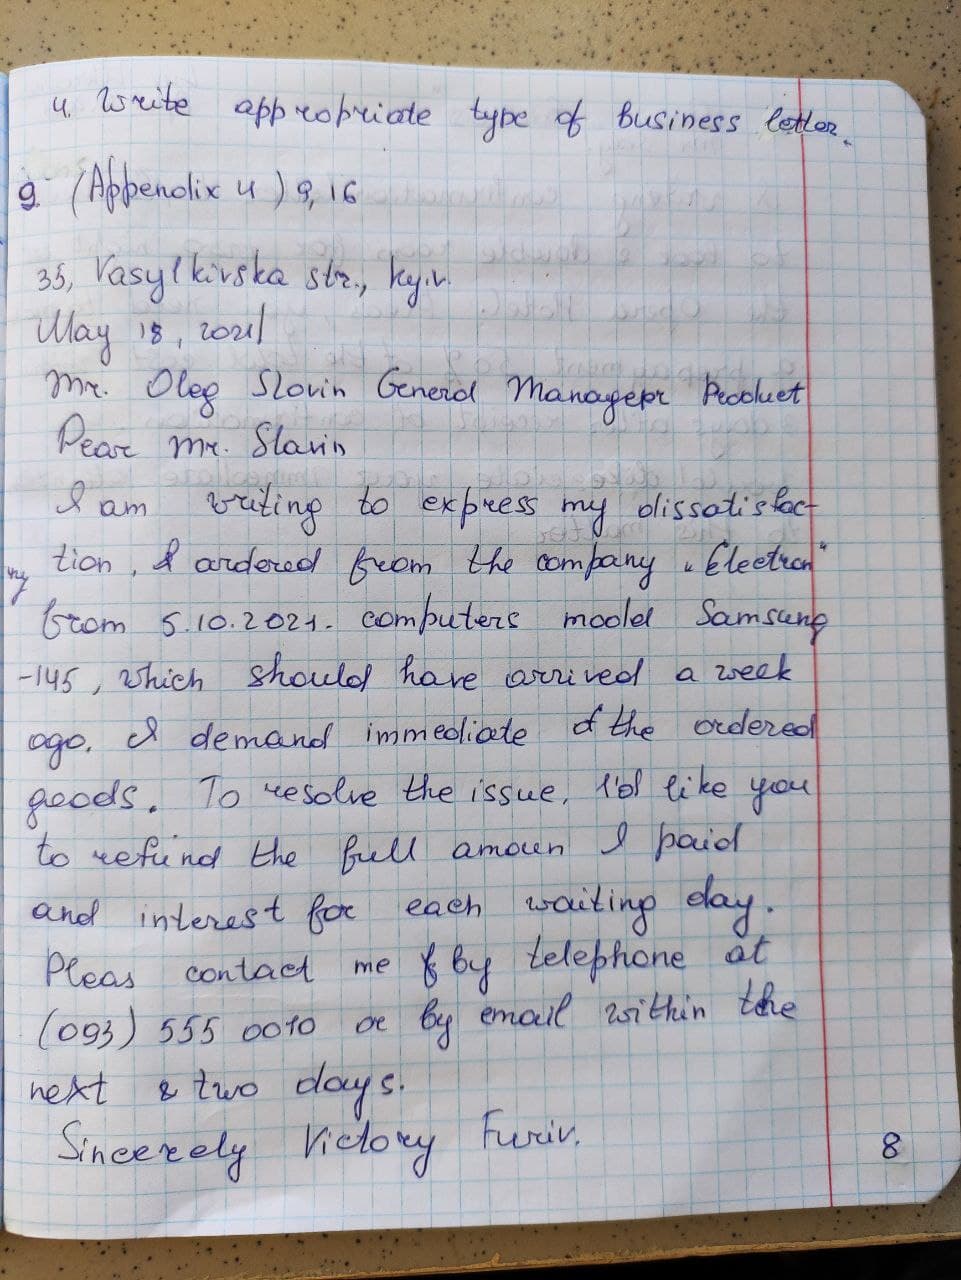 4. Write appropriate type of business letter.
9. (Appendix 4) 9, 16
35, Vasylkivska str., Kyiv.
May 18, 2021
Mr. Oleg Slavin General Manager Product
Dear Mr. Slavin
I am writing to express my dissatisfac-
tion, I ordered from the company "Electron"
from 5.10.2021. computers model Samsung
-145, which should have arrived a week
ago. I demand immediate of the ordered
goods. To resolve the issue, I'd like you
to refund the full amoun I paid
and interest for each waiting day.
Pleas contact me by telephone at
(093) 555 0010 or by email within the
next two days.
Sincerely Victory Furiv.
8